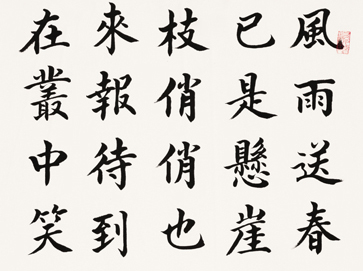 風雨送春
已是懸崖
枝俏俏也
來報待到
在叢中笑